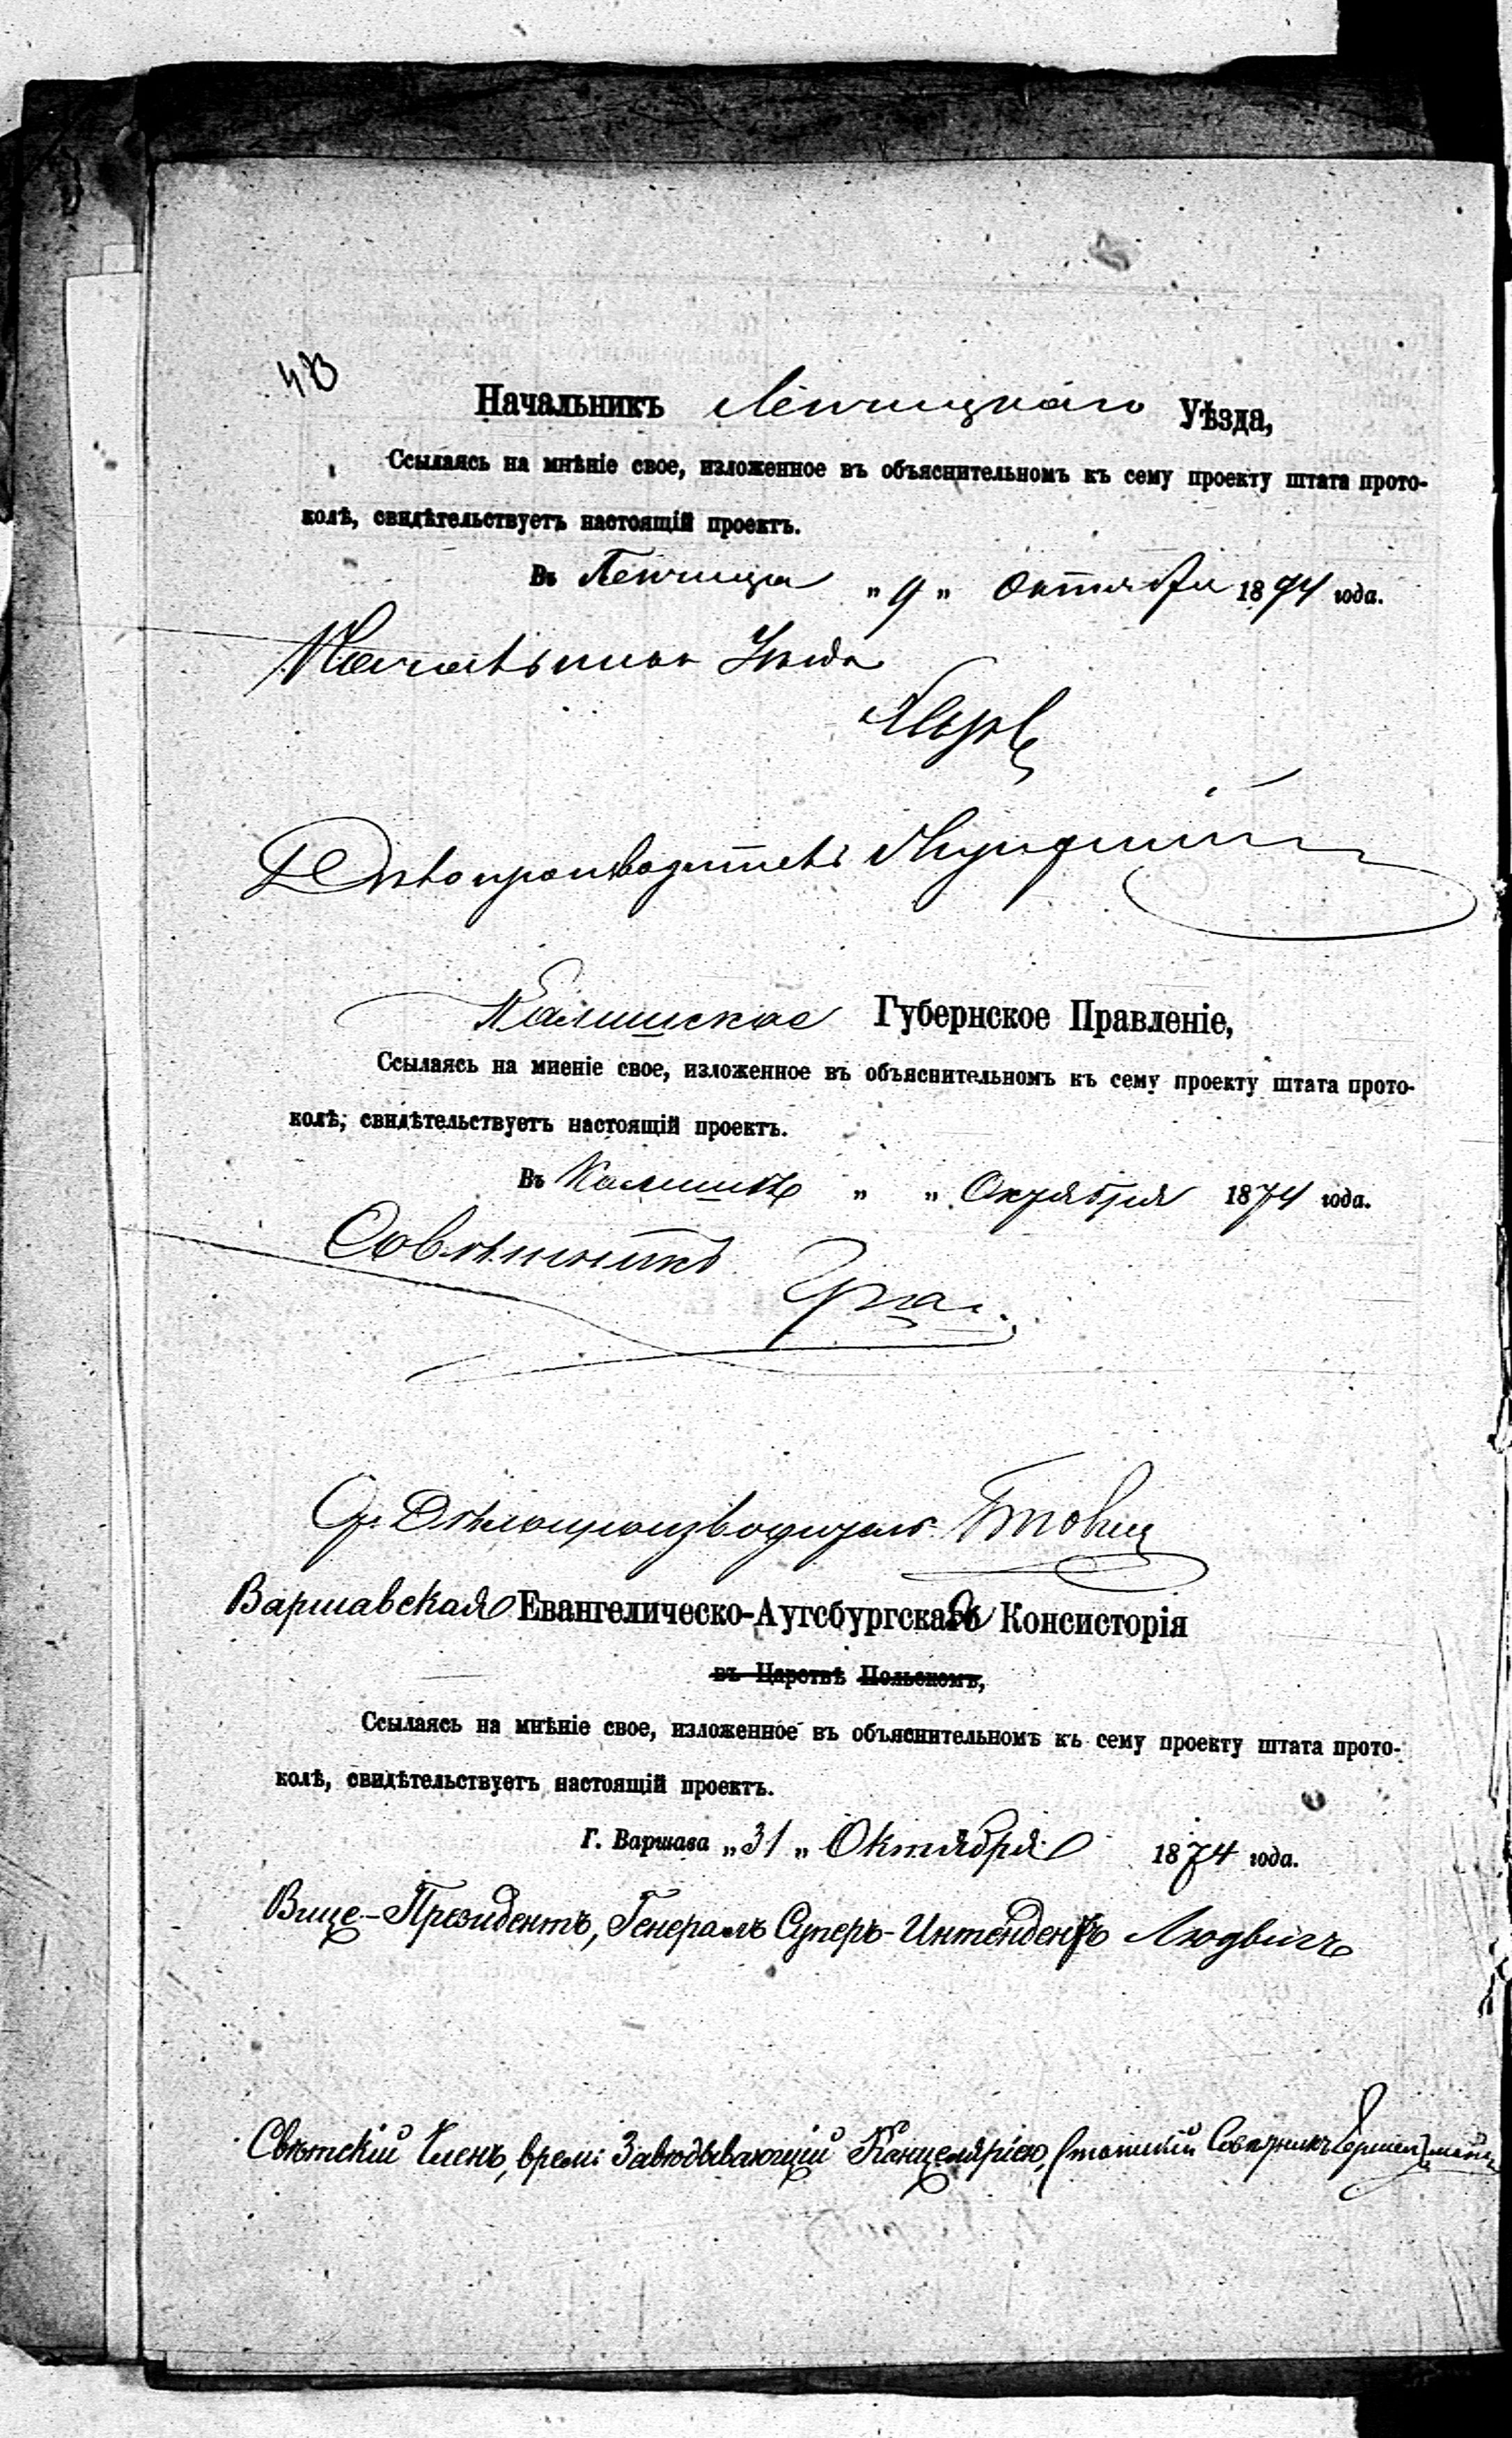 Начальникъ Ленчицкаго Уѣзда,
Ссылаясь на мнѣніе свое, изложенное въ объяснительномъ къ сему проекту штата прото-
колѣ, свидѣтельствуетъ настоящій проектъ.
Въ Ленчица „9„ Октября 1874 года.
Начальникъ Уѣзда
Дѣлопроизводитель
Калишское Губернское Правленіе,
Ссылаясь на миеніе свое, изложенное въ объяснительномъ къ сему проекту штата прото-
колѣ, свидѣтельствуетъ настоящій проектъ.
Въ Калишѣ „ „ Октября 1874 года.
Совѣтникъ
Дѣлопроизводитель
Варшавская Евангелическо-Аугсбургская Консисторія
въ Царствѣ Польскомъ,
Ссылаясь на мнѣніе свое, изложенное въ объяснительномъ къ сему проекту штата прото-
колѣ, свидѣтельствуетъ настоящій проектъ.
Г. Варшава „31„ Октября 1874 года.
Вице-Президентъ, Генералъ Суперъ-Интендентъ Людвигъ
Свѣтскій Членъ, врем: Завѣдывающій Канцеляріею, Статскій Совѣтникъ